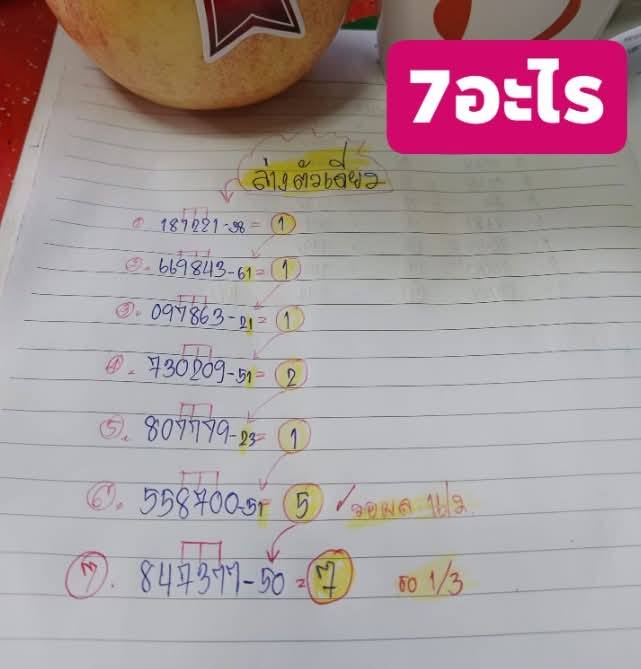 7อะไร
ล่างตัวเดียว
① 187221-98= 1
②. 669843-61= 1
③. 097863-21= 1
④. 730209-51= 2
⑤. 807779-23= 1
⑥. 558700-51= 5 ✓รอผล 1/2
⑦. 847377-50=7 รอ 1/3